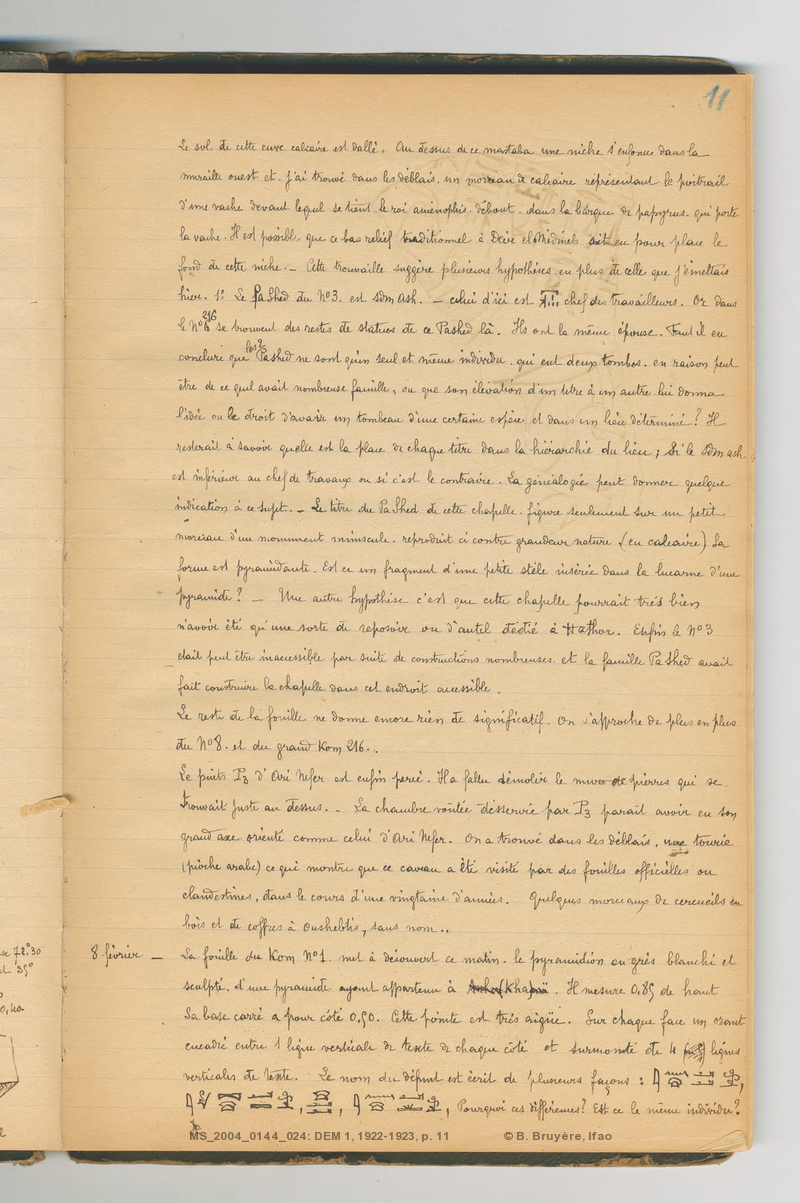 11
Le sol de cette cuve calcaire est dallé. Au dessus de ce mastaba une niche s'enfonce dans la
muraille ouest et j'ai trouvé dans les déblais, un morceau de calcaire représentant le poitrail
d'une vache devant lequel se tient le roi aménophis debout dans la barque de papyrus qui porte
la vache. Il est possible que ce bas relief traditionnel à Deir el Médineh ait eu pour place le
fond de cette niche. _ Cette trouvaille suggère plusieurs hypothèses en plus de celle que j'émettais
hier. 1° Le PaShed du N°3. est sdm ash. _ celui d'ici est chef des travailleurs. Or dans
le N° 216 se trouvent des restes de statues de ce Pashed là. Ils ont la même épouse. Faut il en
conclure que les 2 Pashed ne sont qu'un seul et même individu qui eut deux tombes en raison peut
être de ce qu'il avait nombreuse famille, ou que son élévation d'un titre à un autre lui donna
l'idée ou le droit d'avoir un tombeau d'une certaine espèce et dans un lieu déterminé? Il
resterait à savoir quelle est la place de chaque titre dans la hiérarchie du lieu; si le sdm ash
est inférieur au chef de travaux ou si c'est le contraire. La généalogie peut donner quelque
indication à ce sujet. _ Le titre du PaShed de cette chapelle figure seulement sur un petit
morceau d'un monument minuscule reproduit ci contre grandeur nature (en calcaire) Sa
forme est pyramidante. Est ce un fragment d'une petite stèle insérée dans la lucarne d'une
pyramide? _ Une autre hypothèse c'est que cette chapelle pourrait très bien
n'avoir été qu'une sorte de reposoir ou d'autel dédié à Hathor. Enfin le N°3
était peut être inaccessible par suite de constructions nombreuses et la famille PaShed avait
fait construire la chapelle dans cet endroit accessible.
Le reste de la fouille ne donne encore rien de significatif. On s'approche de plus en plus
du N°8. et du grand Kom 216..
Le puits P3 d'Ari Nefer est enfin percé. Il a fallu démolir le mur de pierres qui se
trouvait juste au dessus. _ La chambre voûtée desservie par P3 paraît avoir eu son
grand axe orienté comme celui d'Ari Nefer. On a trouvé dans les déblais, une tourie
(pioche arabe) ce qui montre que ce caveau a été visité par des fouilles officielles ou
clandestines, dans le cours d'une vingtaine d'années. Quelques morceaux de cercueils en
bois et de coffres à oushebtis, sans nom..
8 février _ La fouille du Kom N°1 met à découvert ce matin le pyramidion en grès blanchi et
sculpté d'une pyramide ayant appartenu à . Il mesure 0,85 de haut
Sa base carré a pour côté 0.50. Cette pointe est très aigüe. Sur chaque face un orant
encadré entre 1 ligne verticale de texte de chaque côté et surmonté de 4 lignes
verticales de texte. Le nom du défunt est écrit de plusieurs façons :
Pourquoi ces différences? Est ce le même individu?
MS_2004_0144_024: DEM 1, 1922-1923, p. 11 © B. Bruyère, Ifao